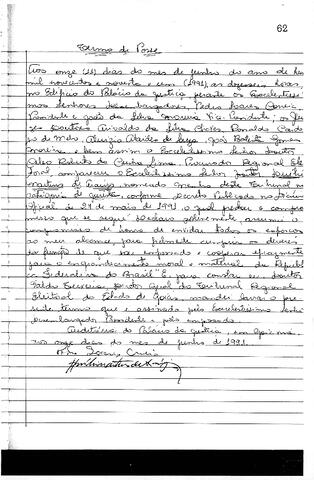 62
Termo de Posse
Aos onze (11) dias do mes de junho do ano de hum
mil novecentos e noventa e um (1991), as dezesseis horas,
no Edifício do Palácio da Justiça perante os Excelentíssi
mos Senhores Desembargadores, Pedro Soares Correia
Presidente e João da Silva Vice-Presidente; os Ju
ízes Doutores da Silva Ronaldo
de Melo, João Batista Gomes
Moreira e bem assim o Excelentíssimo Senhor Doutor
Celso Roberto da Cunha Lima Procurador Regional Elei
toral, compareceu o Excelentíssimo Senhor Doutor
Martins de Araujo nomeado membro deste Tribunal na
categoria de jurista, conforme Decreto Publicado no Diário
Oficial de 29 de maio de 1991, o qual prestou o compro
misso que se segue: "Declaro solenemente, assumir o
compromisso de honra de envidar todos os esforços
ao meu alcance, para fielmente cumprir os deveres
da função de que sou empossado e cooperar eficazmente
para o engrandecimento moral e material da Repúbli
ca Federativa do Brasil". E, para constar eu, Doutor
Geral do Tribunal Regional
Eleitoral do Estado de Goiás, mandei lavrar o pre
sente termo que é assinado pelo Excelentíssimo Senhor
Desembargador Presidente e pelo empossado.
Auditório do Palácio da Justiça, em Goiânia,
aos onze dias do mes de junho de 1991.